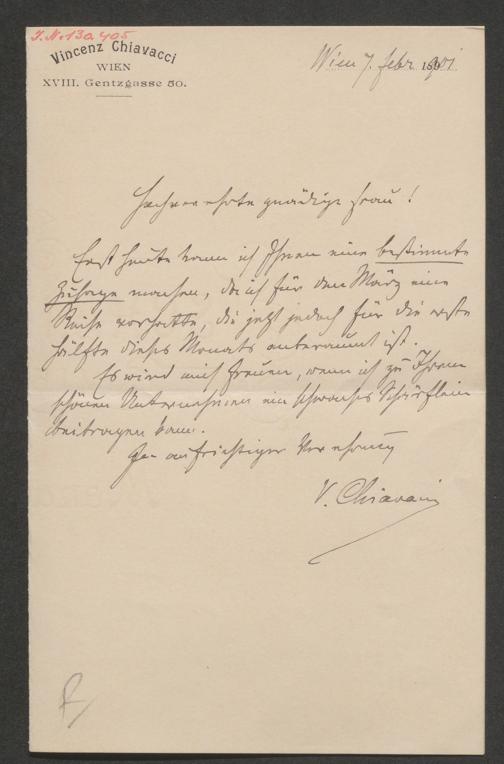 J.N. 130.405
Vincenz Chiavacci
WIEN
XVIII. Gentzgasse 50.
Wien 7. Febr 1901.
Hochverehrte gnädige Frau!
Erst heute kann ich Ihnen eine bestimmte
Zusage machen, da ich für den März eine
Reise vorhatte, die jetzt jedoch für die erste
Hälfte dieses Monats anberaumt ist.
Es wird mich freuen, wenn ich zu Ihrem
schönen Unternehmen ein schwaches Schärflein
beitragen kann.
In aufrichtiger Verehrung
V. Chiavacci